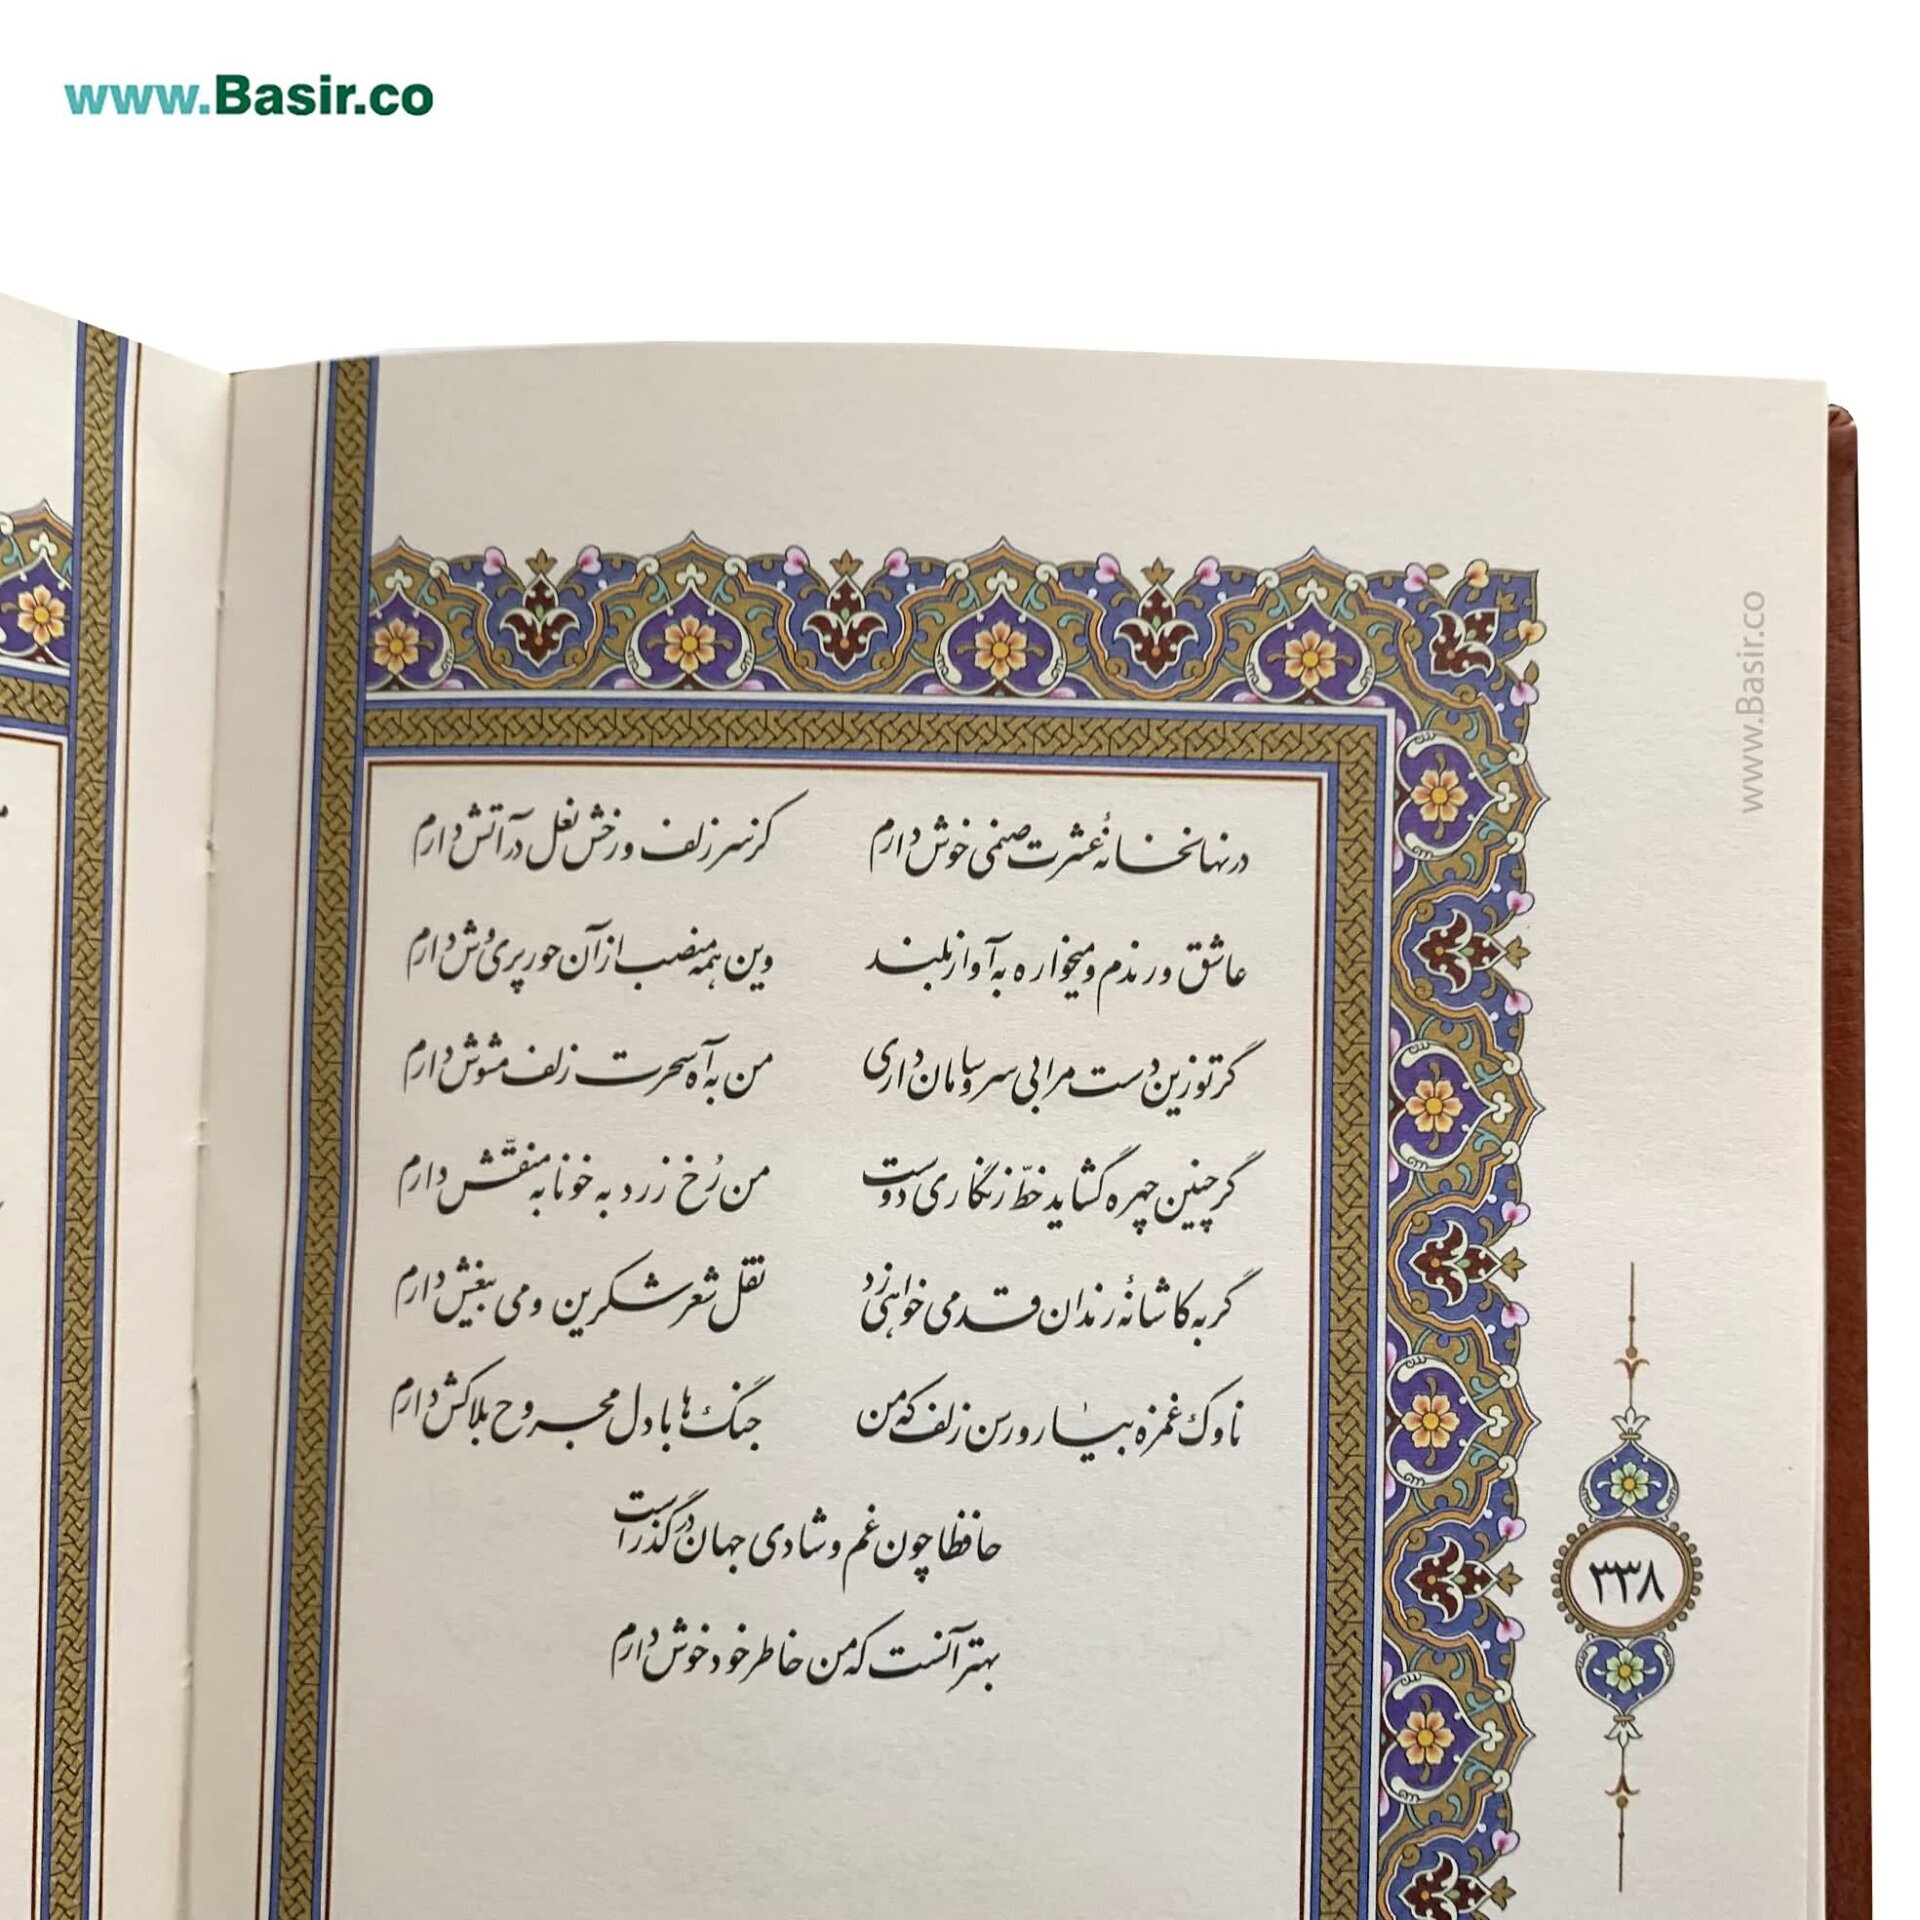 www.Basir.co
در نهانخانهٔ عشرت صنمی خوش دارم
کز سر زلف و رخش نعل در آتش دارم
عاشق و رندم و میخواره به آواز بلند
وین همه منصب از آن حور پری وش دارم
گر تو زین دست مرا بی سر و سامان داری
من به آه سحرت زلف مشوش دارم
گر چنین چهره گشاید خطّ زنگاری دوست
من رُخ زرد به خونابه منقّش دارم
گر به کاشانهٔ رندان قدمی خواهی زد
نقل شعر شکرین و می بیغش دارم
ناوک غمزه بیار و رسن زلف که من
جنگ‌ها با دل مجروح بلاکش دارم
حافظا چون غم و شادی جهان در گذر است
بهتر آنست که من خاطر خود خوش دارم
۳۳۸
www.Basir.co